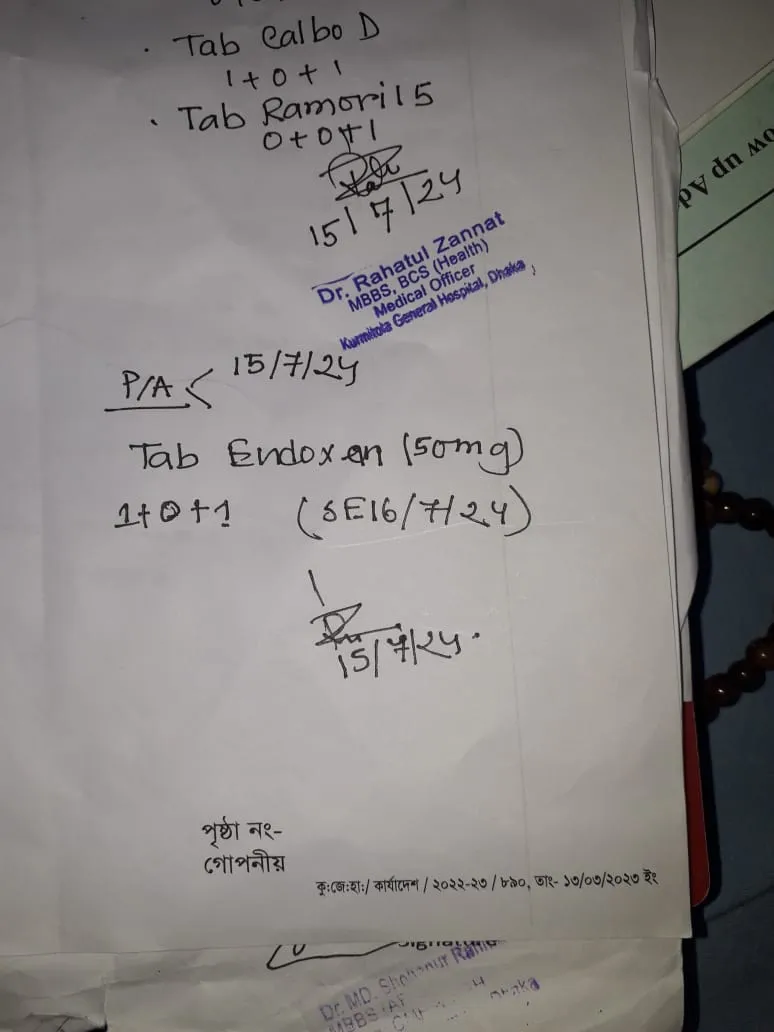 · Tab Calbo D
1 + 0 + 1
· Tab Ramoril 5
0 + 0 + 1
15/7/24
Dr. Rahatul Zannat
MBBS, BCS (Health)
Medical Officer
Kurmitola General Hospital, Dhaka
ow up Ad
P/A < 15/7/24
Tab Endoxan (50mg)
1 + 0 + 1 (SE16/7/24)
15/7/24.
পৃষ্ঠা নং-
গোপনীয়
কু:জে:হা:/ কার্যাদেশ / ২০২২-২৩ / ৮৯০, তাং- ১৩/০৩/২০২৩ ইং
Signature
Dr. MD.
MBBS